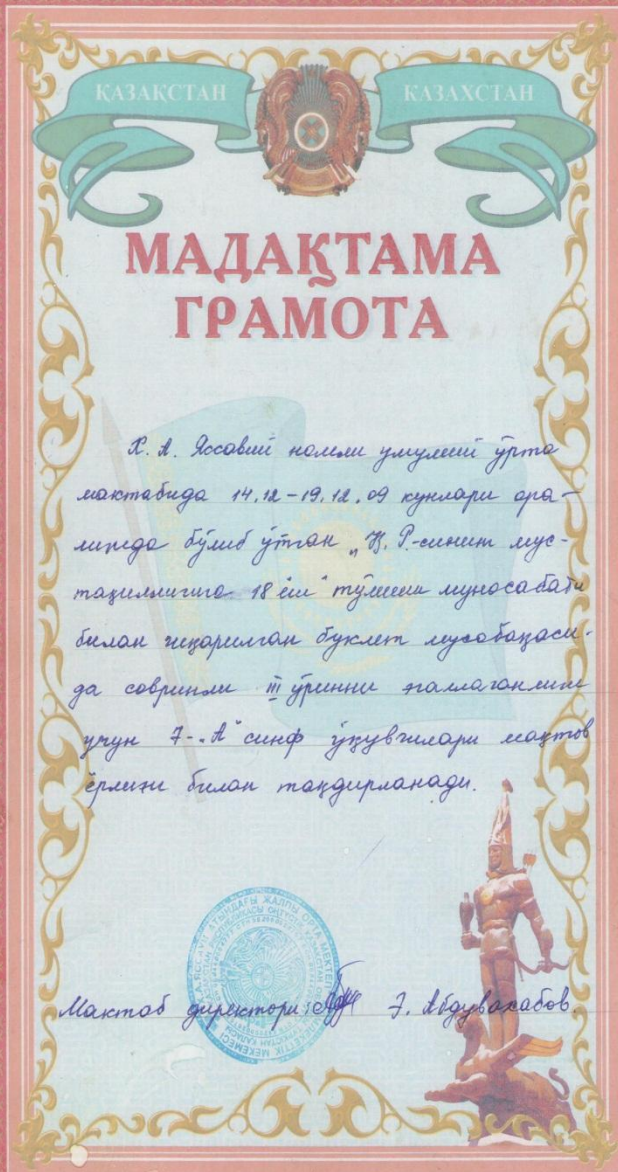 ҚАЗАҚСТАН КАЗАХСТАН
МАДАҚТАМА
ГРАМОТА
Х. А. Яссавий номли умумий ўрта
мактабида 14.12-19.12.09 кунлари ора-
лиғида бўлиб ўтган „Қ. Р.-сининг мус-
тақиллигига 18 ёш" тўлиши муносабати
билан чиқарилган буклет мусобақаси-
да совринли III ўринни эгаллаганлиги
учун 7-„А" синф ўқувчилари мақтов
ёрлиғи билан тақдирланади.
Мактаб директори: Э. Абдувахабов.